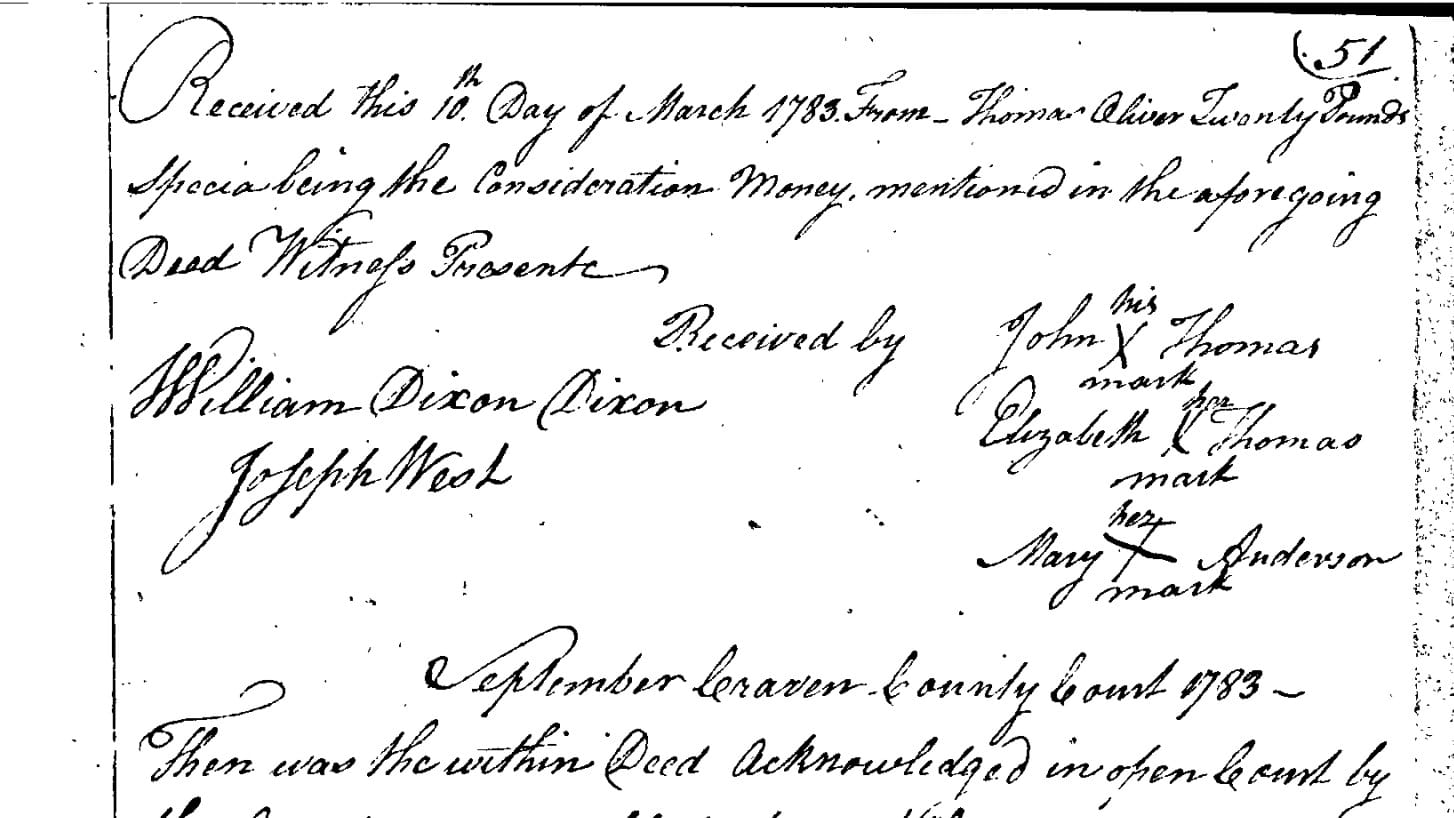 (51
Received this 10.th Day of March 1783. From - Thomas Oliver Twenty Pounds
Specia being the Consideration Money, mentioned in the aforegoing
Deed Witness Presente
Received by John his X mark Thomas
William Dixon Dixon
Elizabeth her X mark Thomas
Joseph West
Mary her X mark Anderson
September Craven County Court 1783 -
Then was the within Deed Acknowledged in open Court by